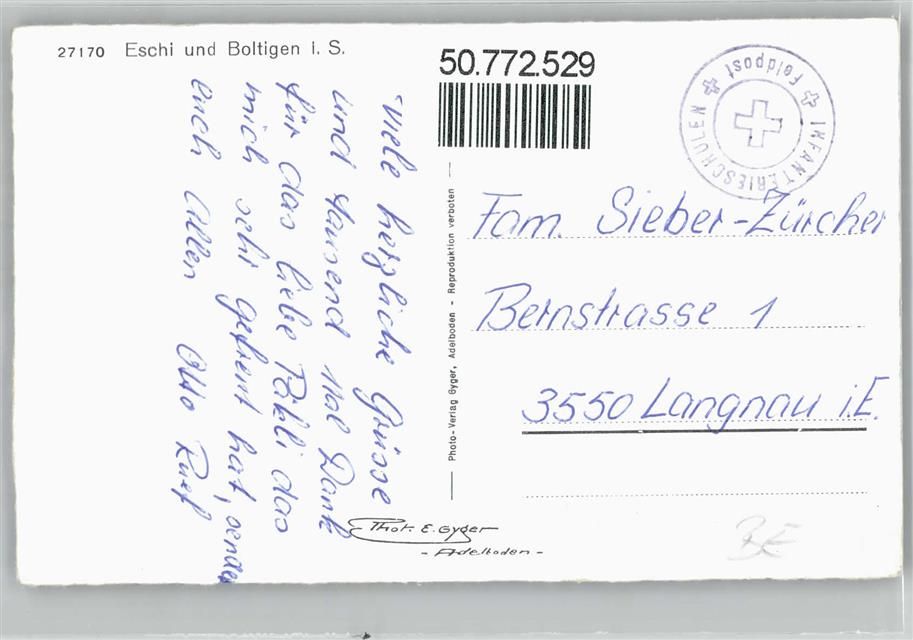 27170 Eschi und Boltigen i. S.
50.772.529
INFANTERIESCHULEN
Feldpost
Viele herzliche Grüsse
und tausend Mal Dank
für das liebe Päkli das
mich sehr gefreut hat, sendet
euch Allen Otto Ruef
Photo-Verlag Gyger, Adelboden - Reproduktion verboten
Fam. Sieber-Zürcher
Bernstrasse 1
3550 Langnau i.E.
Phot. E. Gyger
- Adelboden -
BE